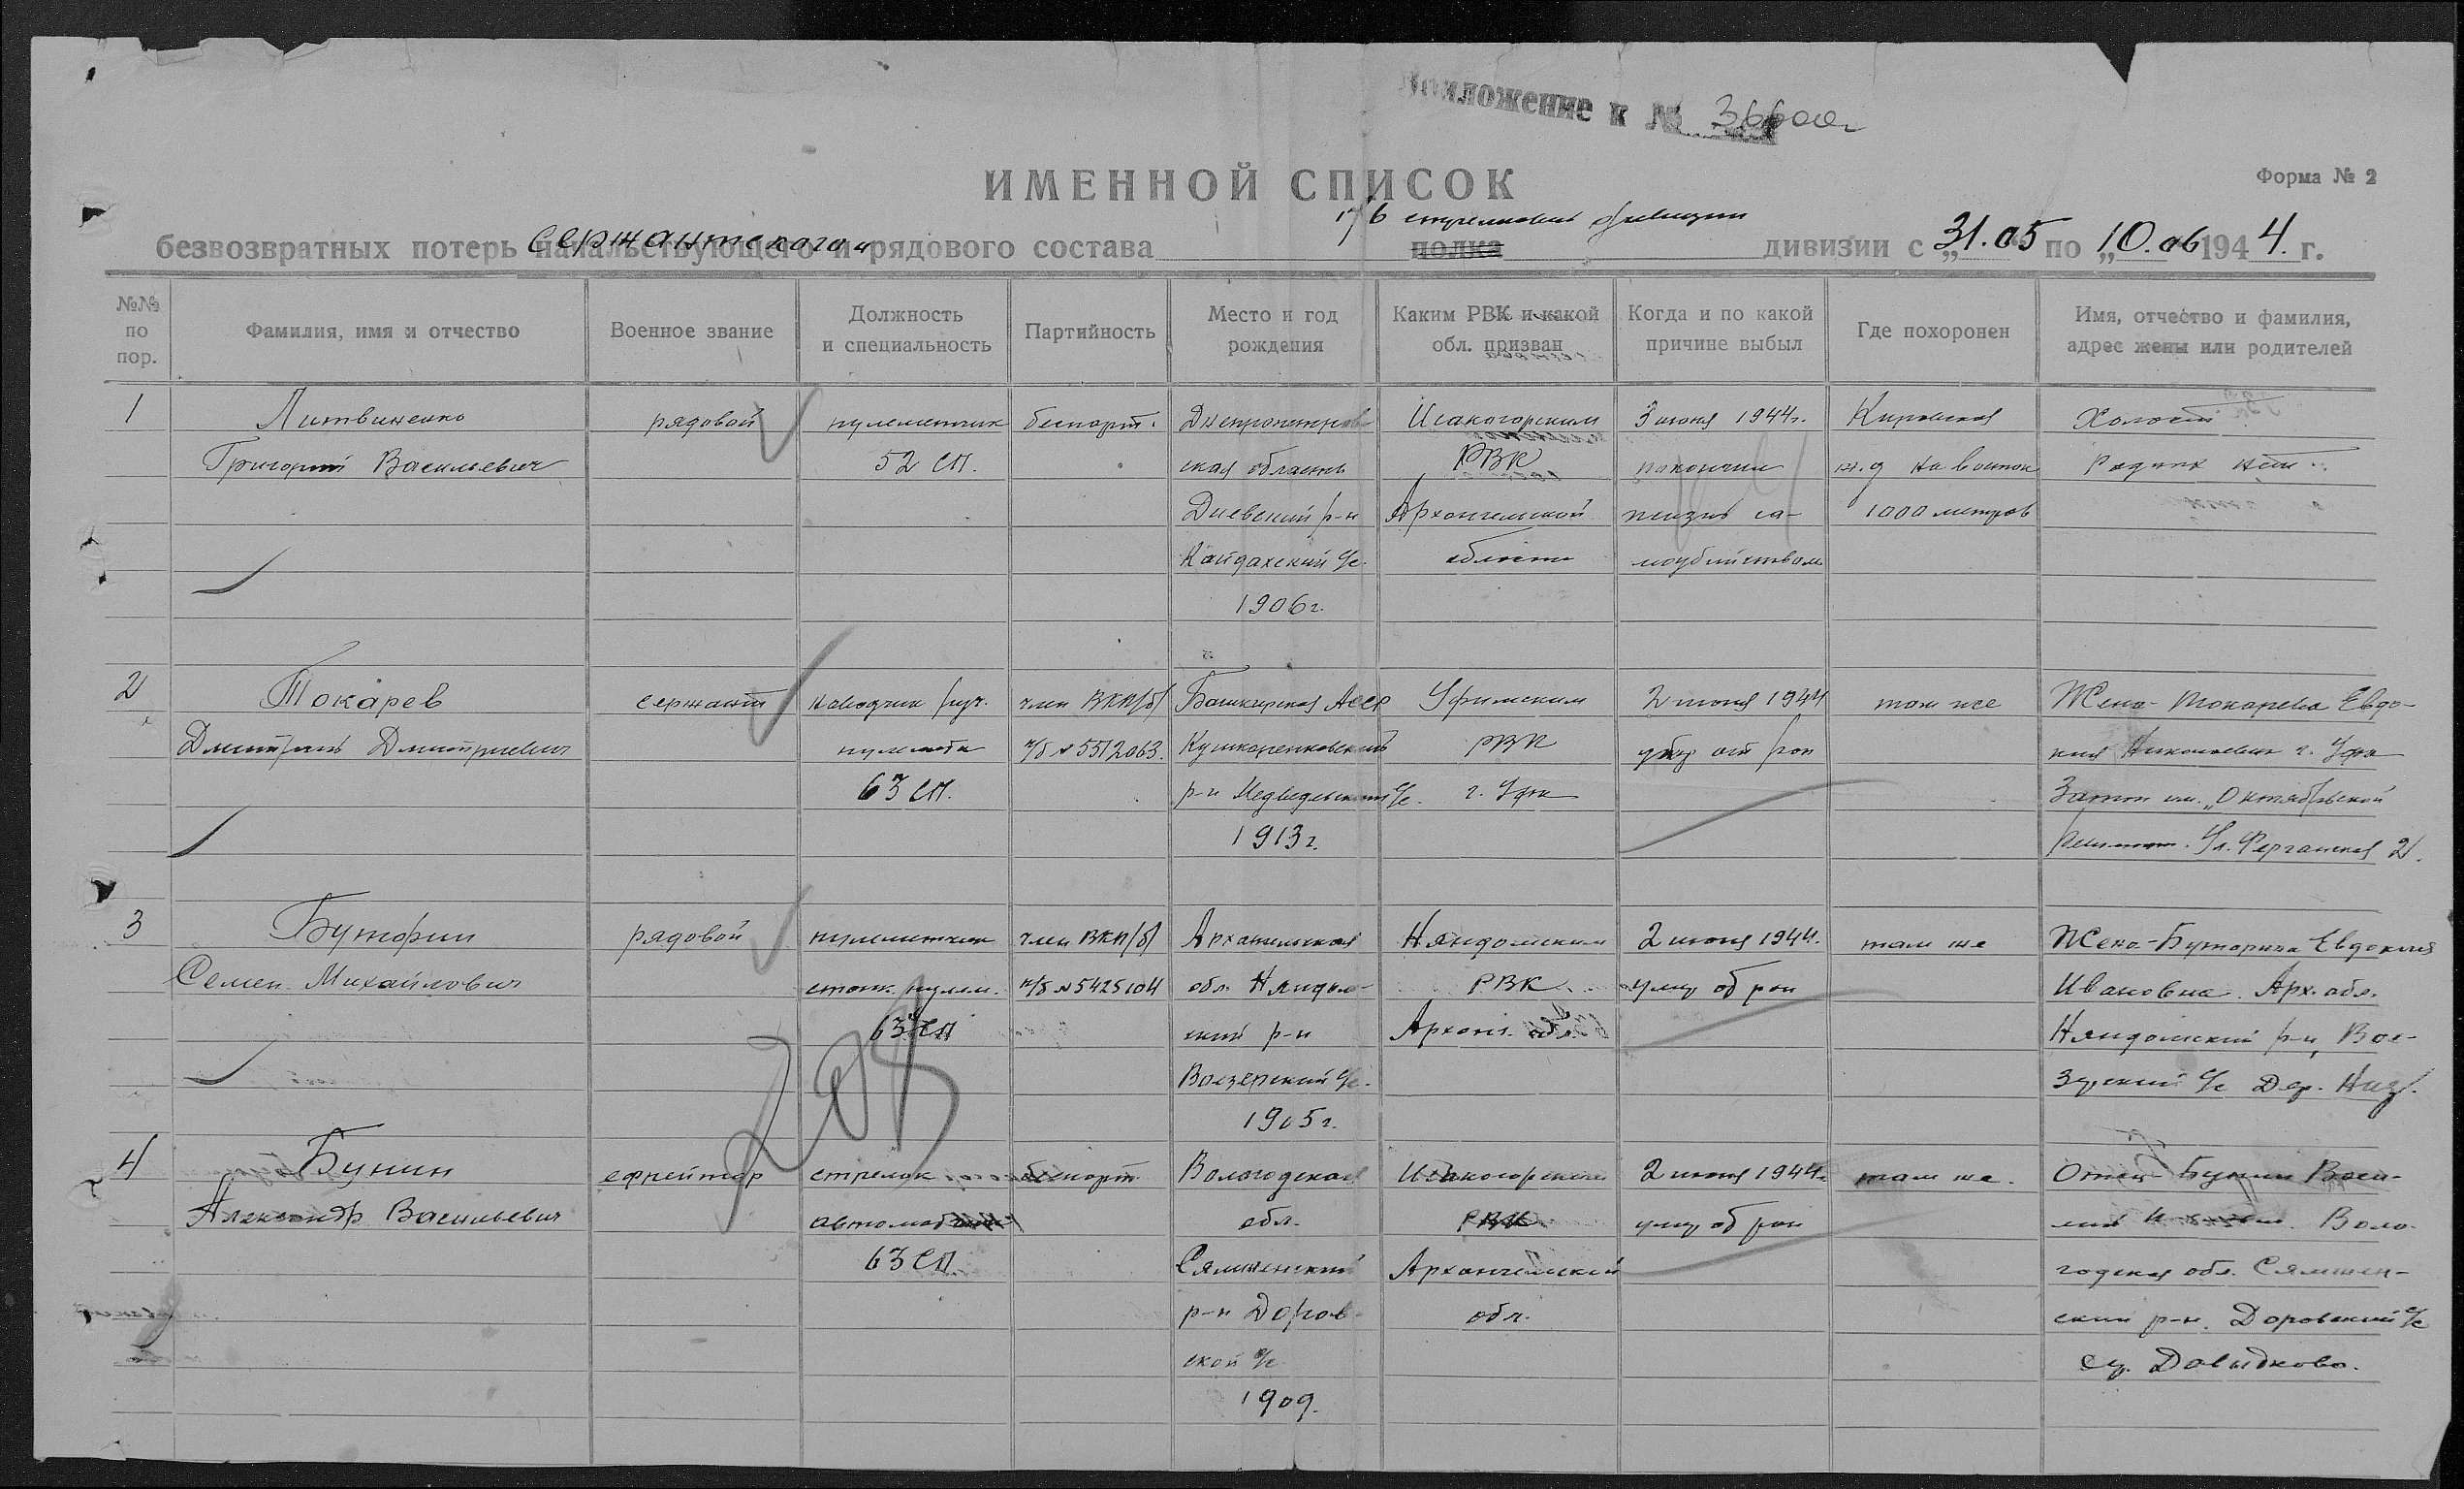 Приложение к № 36600г
ИМЕННОЙ СПИСОК
Форма № 2
176 стрелковой дивизии
безвозвратных потерь начальствующего и рядового состава полка дивизии с „31.05 по „10.06 1944. г.
сержантского и
№№ по пор.
Фамилия, имя и отчество
Военное звание
Должность и специальность
Партийность
Место и год рождения
Каким РВК и какой обл. призван
Когда и по какой причине выбыл
Где похоронен
Имя, отчество и фамилия, адрес жены или родителей
1 Литвиненко рядовой пулеметчик беспарт. Днепропетров- Исакогорским 3 июня 1944г. Холост
Григорий Васильевич 52 СП. ская область РВК покончил на восток Родных нет
р-н Архангельской жизнь са- 1000 метров
Кайдахский с/с. области моубийством
1906г.
2 Токарев сержант наводчик руч. член ВКП/б/ Башкирская АССР Уфимским 2 июня 1944 там же Жена - Токарева Евдо-
Дмитрий Дмитриевич пулемета п/б №5512063. Кушнаренковский РВК убит кия Николаевна г. Уфа
63 СП. р-н Медведевский с/с. г. Уфа Затон им. „Октябрьской
1913г. Ул. Ферганская 2.
3 Буторин рядовой пулеметчик член ВКП/б/ Архангельская Няндомским 2 июня 1944. там же Жена - Буторина Евдокия
Семен Михайлович станк. пулем. п/б №5425104 обл. Няндом- РВК Ивановна. Арх. обл.
63 СП ский р-н Арханг. обл. Няндомский р-н, Вое-
Воезерский с/с. зерский с/с Дер.
1905г.
4 Бунин ефрейтор стрелок беспарт. Вологодская Исакогорским 2 июня 1944г. там же. Отец - Бунин Васи-
Александр Васильевич обл. РВК лий Воло-
63 СП. Сямженский Архангельской годская обл. Сямжен-
р-н Доров- обл. ский р-н. Доровский с/с
ской с/с Давыдково.
1909.